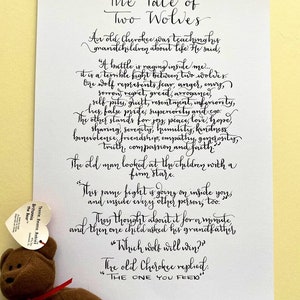 The Tale of
Two Wolves
An old Cherokee was teaching his
grandchildren about life. He said,
"A battle is raging inside me...
it is a terrible fight between two wolves.
One wolf represents fear, anger, envy,
sorrow, regret, greed, arrogance,
self pity, guilt, resentment, inferiority,
lies, false pride, superiority and ego.
The other stands for joy, peace, love, hope,
sharing, serenity, humility, kindness,
benevolence, friendship, empathy, generosity,
truth, compassion and faith."
The old man looked at the children with a
firm stare.
"This same fight is going on inside you,
and inside every other person, too."
They thought about it for a minute,
and then one child asked his grandfather,
"Which wolf will win?"
The old Cherokee replied:
"THE ONE YOU FEED"